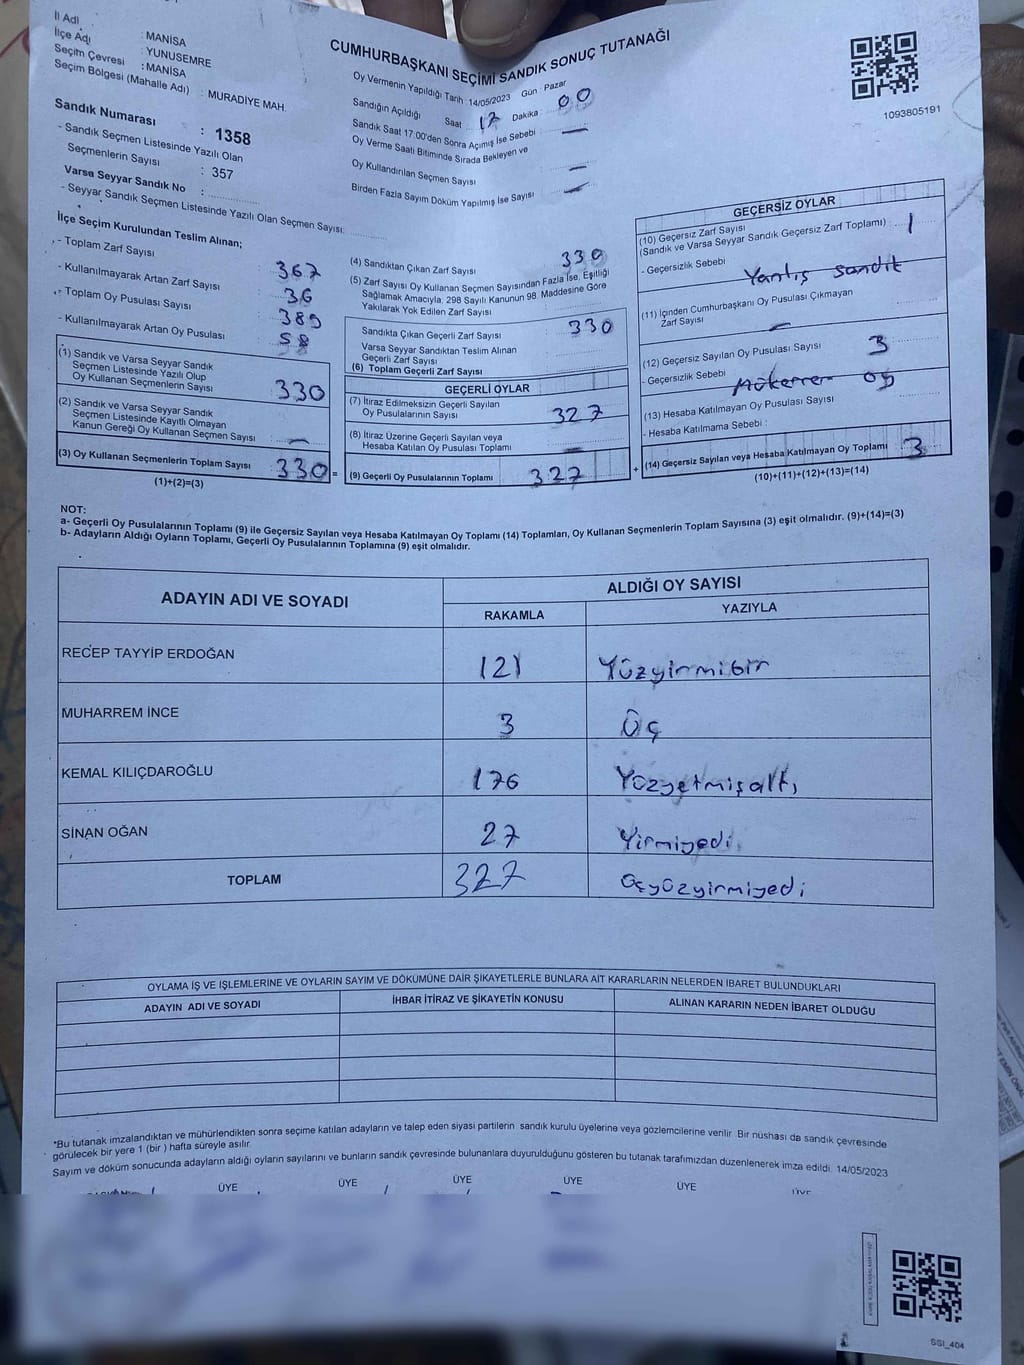 İl Adı : MANİSA
İlçe Adı : YUNUSEMRE
Seçim Çevresi : MANİSA
Seçim Bölgesi (Mahalle Adı) : MURADİYE MAH.
Sandık Numarası : 1358
- Sandık Seçmen Listesinde Yazılı Olan
Seçmenlerin Sayısı : 357
Varsa Seyyar Sandık No :
- Seyyar Sandık Seçmen Listesinde Yazılı Olan Seçmen Sayısı:
CUMHURBAŞKANI SEÇİMİ SANDIK SONUÇ TUTANAĞI
Oy Vermenin Yapıldığı Tarih : 14/05/2023 Gün : Pazar
Sandığın Açıldığı Saat 17 Dakika 00
Sandık Saat 17:00'den Sonra Açımış İse Sebebi —
Oy Verme Saati Bitiminde Sırada Bekleyen ve
Oy Kullandırılan Seçmen Sayısı —
Birden Fazla Sayım Döküm Yapılmış İse Sayısı —
1093805191
İlçe Seçim Kurulundan Teslim Alınan;
- Toplam Zarf Sayısı : 367
- Kullanılmayarak Artan Zarf Sayısı : 36
- Toplam Oy Pusulası Sayısı : 385
- Kullanılmayarak Artan Oy Pusulası : 58
(1) Sandık ve Varsa Seyyar Sandık
Seçmen Listesinde Yazılı Olup
Oy Kullanan Seçmenlerin Sayısı : 330
(2) Sandık ve Varsa Seyyar Sandık
Seçmen Listesinde Kayıtlı Olmayan
Kanun Gereği Oy Kullanan Seçmen Sayısı : —
(3) Oy Kullanan Seçmenlerin Toplam Sayısı : 330 =
(1)+(2)=(3)
(4) Sandıktan Çıkan Zarf Sayısı 330
(5) Zarf Sayısı Oy Kullanan Seçmen Sayısından Fazla İse, Eşitliği
Sağlamak Amacıyla, 298 Sayılı Kanunun 98. Maddesine Göre
Yakılarak Yok Edilen Zarf Sayısı
Sandıkta Çıkan Geçerli Zarf Sayısı 330
Varsa Seyyar Sandıktan Teslim Alınan
Geçerli Zarf Sayısı
(6) Toplam Geçerli Zarf Sayısı
GEÇERLİ OYLAR
(7) İtiraz Edilmeksizin Geçerli Sayılan
Oy Pusulalarının Sayısı 327
(8) İtiraz Üzerine Geçerli Sayılan veya
Hesaba Katılan Oy Pusulası Toplamı —
(9) Geçerli Oy Pusulalarının Toplamı 327 +
GEÇERSİZ OYLAR
(10) Geçersiz Zarf Sayısı
(Sandık ve Varsa Seyyar Sandık Geçersiz Zarf Toplamı) 1
- Geçersizlik Sebebi : Yanlış sandık
(11) İçinden Cumhurbaşkanı Oy Pusulası Çıkmayan
Zarf Sayısı —
(12) Geçersiz Sayılan Oy Pusulası Sayısı 3
- Geçersizlik Sebebi : Mükerrer oy
(13) Hesaba Katılmayan Oy Pusulası Sayısı
- Hesaba Katılmama Sebebi :
(14) Geçersiz Sayılan veya Hesaba Katılmayan Oy Toplamı 3
(10)+(11)+(12)+(13)=(14)
NOT:
a- Geçerli Oy Pusulalarının Toplamı (9) ile Geçersiz Sayılan veya Hesaba Katılmayan Oy Toplamı (14) Toplamları, Oy Kullanan Seçmenlerin Toplam Sayısına (3) eşit olmalıdır. (9)+(14)=(3)
b- Adayların Aldığı Oyların Toplamı, Geçerli Oy Pusulalarının Toplamına (9) eşit olmalıdır.
ADAYIN ADI VE SOYADI ALDIĞI OY SAYISI
RAKAMLA YAZIYLA
RECEP TAYYİP ERDOĞAN 121 Yüzyirmibir
MUHARREM İNCE 3 Üç
KEMAL KILIÇDAROĞLU 176 Yüzyetmişaltı
SİNAN OĞAN 27 Yirmiyedi
TOPLAM 327 Üçyüzyirmiyedi
OYLAMA İŞ VE İŞLEMLERİNE VE OYLARIN SAYIM VE DÖKÜMÜNE DAİR ŞİKAYETLERLE BUNLARA AİT KARARLARIN NELERDEN İBARET BULUNDUKLARI
ADAYIN ADI VE SOYADI İHBAR İTİRAZ VE ŞİKAYETİN KONUSU ALINAN KARARIN NEDEN İBARET OLDUĞU
*Bu tutanak imzalandıktan ve mühürlendikten sonra seçime katılan adayların ve talep eden siyasi partilerin sandık kurulu üyelerine veya gözlemcilerine verilir. Bir nüshası da sandık çevresinde
görülecek bir yere 1 (bir ) hafta süreyle asılır.
Sayım ve döküm sonucunda adayların aldığı oyların sayılarını ve bunların sandık çevresinde bulunanlara duyurulduğunu gösteren bu tutanak tarafımızdan düzenlenerek imza edildi. 14/05/2023
ÜYE ÜYE ÜYE ÜYE ÜYE ÜYE
SSI_404